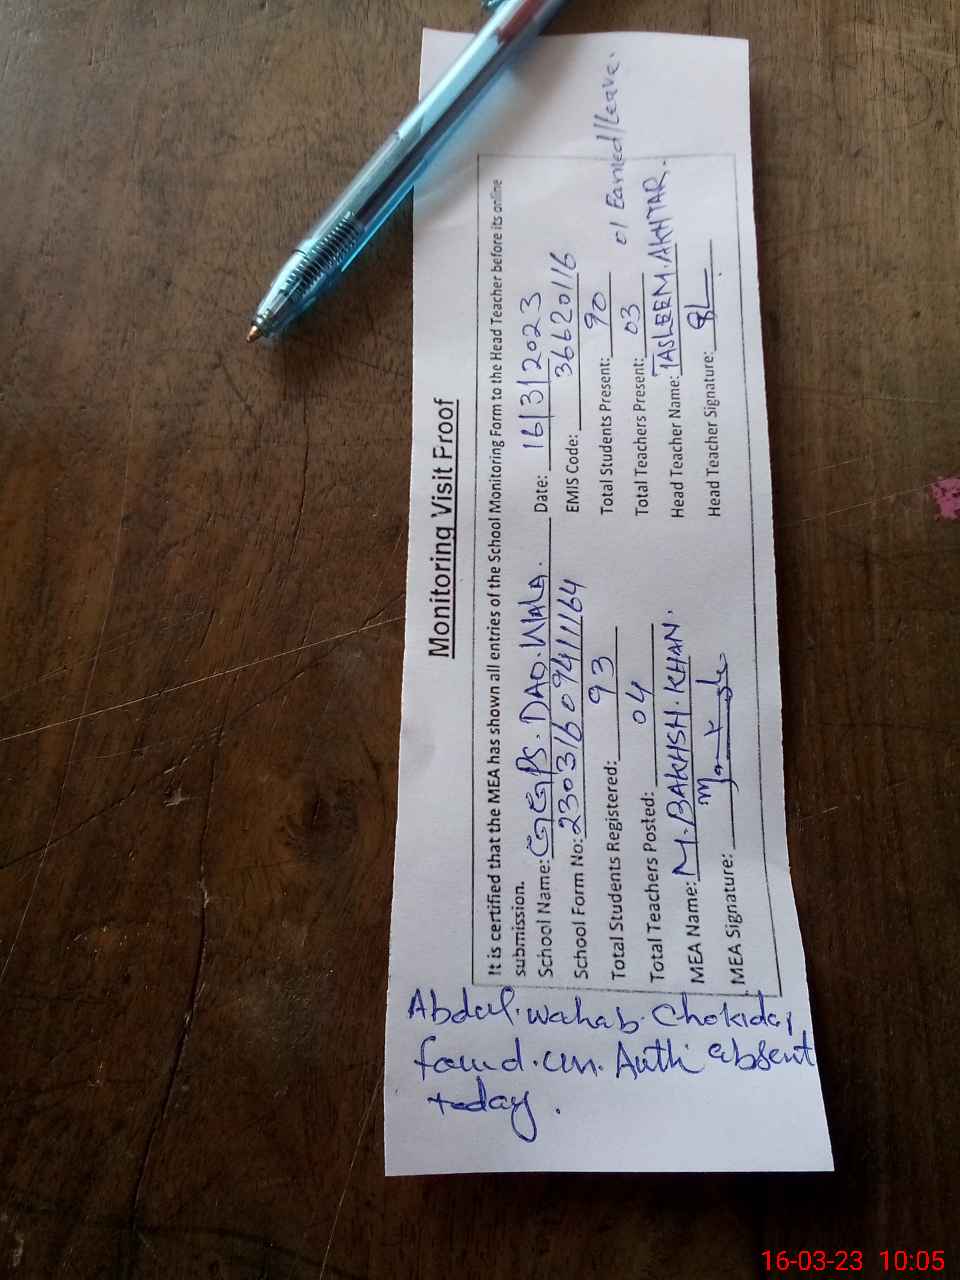 Monitoring Visit Proof
It is certified that the MEA has shown all entries of the School Monitoring Form to the Head Teacher before its online
submission.
School Name: GGPS. DAD. WALA. Date: 16/3/2023
School Form No: 230316094111164 EMIS Code: 36620116
Total Students Registered: 93 Total Students Present: 90
Total Teachers Posted: 04 Total Teachers Present: 03 01 Earned/Leave.
MEA Name: M. BAKHSH. KHAN. Head Teacher Name: TASLEEM. AKHTAR.
MEA Signature: Head Teacher Signature:
Abdul. wahab. Chokidar
found. un. Auth absent
today.
16-03-23 10:05